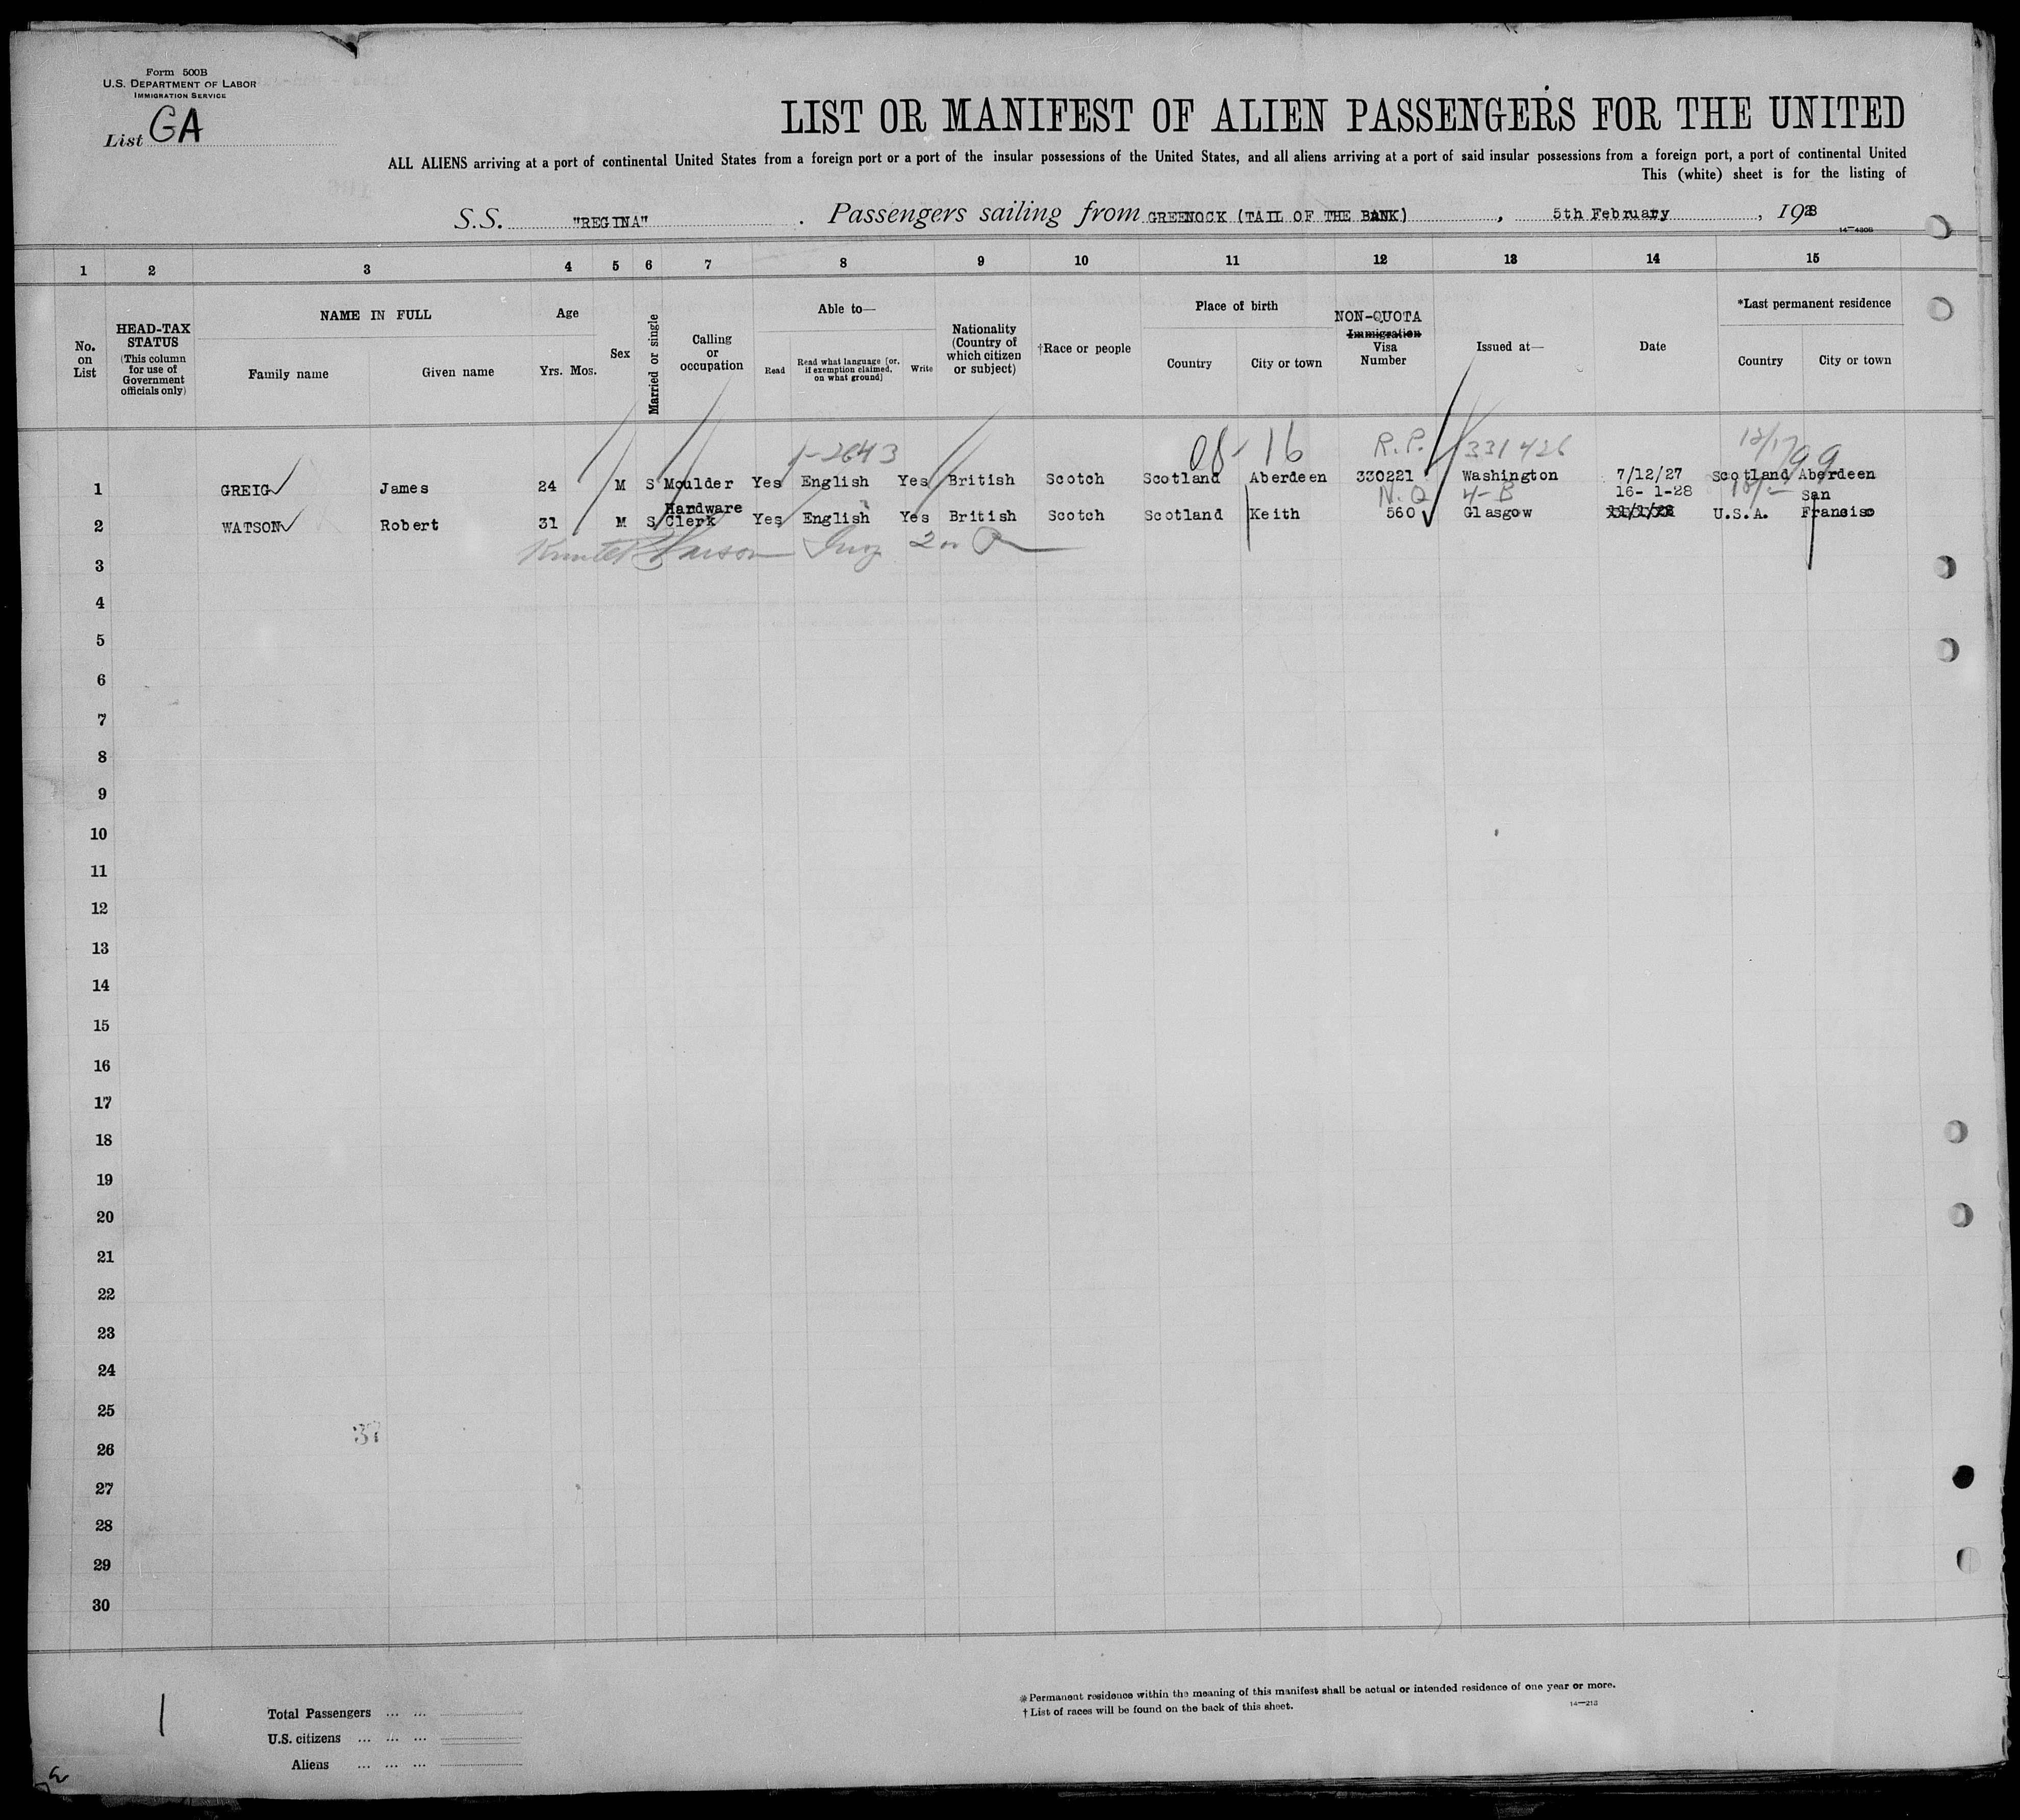 Form 500B
U.S. DEPARTMENT OF LABOR
IMMIGRATION SERVICE
List GA
LIST OR MANIFEST OF ALIEN PASSENGERS FOR THE UNITED
ALL ALIENS arriving at a port of continental United States from a foreign port or a port of the insular possessions of the United States, and all aliens arriving at a port of said insular possessions from a foreign port, a port of continental United
This (white) sheet is for the listing of
S.S. "REGINA" . Passengers sailing from GREENOCK (TAIL OF THE BANK) , 5th February , 1928
1 2 3 4 5 6 7 8 9 10 11 12 13 14 15
No. on List
HEAD-TAX STATUS
(This column for use of Government officials only)
NAME IN FULL
Family name Given name
Age
Yrs. Mos.
Sex
Married or single
Calling or occupation
Able to—
Read
Read what language [or, if exemption claimed, on what ground]
Write
Nationality (Country of which citizen or subject)
†Race or people
Place of birth
Country City or town
NON-QUOTA
Immigration Visa Number
Issued at—
Date
*Last permanent residence
Country City or town
1-2643 08-16 R.P. 331426
1 GREIG James 24 M S Moulder Yes English Yes British Scotch Scotland Aberdeen 330221 Washington 7/12/27 Scotland Aberdeen
N.Q 4-B 16- 1-28
2 WATSON Robert 31 M S Hardware Clerk Yes English Yes British Scotch Scotland Keith 560 Glasgow U.S.A. San Francisc
3
4
5
6
7
8
9
10
11
12
13
14
15
16
17
18
19
20
21
22
23
24
25
37
26
27
28
29
30
1
Total Passengers ... ...
U.S. citizens ... ... ...
Aliens ... ... ...
*Permanent residence within the meaning of this manifest shall be actual or intended residence of one year or more.
†List of races will be found on the back of this sheet.
14—213